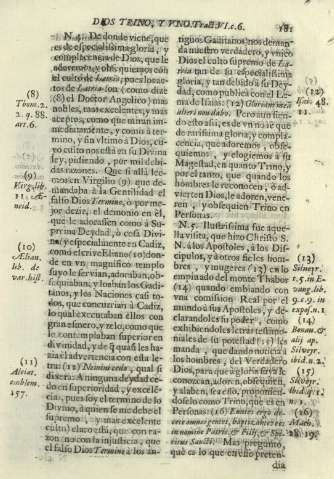 DIOS TRINO, Y VNO. Trat. VI. c. 6.
181
N. 4. De donde viene, que
es de especialissima gloria, y
complacencia de Dios, que le
adorèmos, y obsequiemos con
el culto de Latria, pues los ac-
tos de Latria son (como dize
(8) el Doctor Angelico) mas
nobles, mas excelentes, y mas
aceptos, como que miran in-
mediatamente, y como à ter-
mino, y fin vltimo à Dios, cu-
yo culto nos està en su Divina
Ley, pidiendo, por mil debi-
das razones. Que si allà lee-
mos en Virgilio (9) que de-
mandaba à la Gentilidad el
falso Dios Termino, ò por me-
jor dezir, el demonio en èl,
que le adorassen como à Su-
prema Deydad, ò cesa Divi-
na: y especialmente en Cadiz,
como escrive Eliano (10) don-
de en vn magnifico templo
suyo le servian, adoraban, ob-
sequiaban, y loaban los Gadi-
tanos, y los Naciones casi to-
dos, que concurrian à Cadiz,
lo qual executaban ellos con
gran esmero, y zelo, como que
contemplaban superior en
divinidad, y de él que les ha-
zia el advertencia con esta le-
tra: (11) Nemini cedo, qual si
dixera: A ninguna deydad ce-
do en superioridad, y excelen-
cia, pues soy el termino de lo
Divino, à quien se me debe el
supremo, y mas excelente
culto) eluçta esta, que con ra-
zon no con la injusticia, que
el falso Dios Termino à los an-
(8)
Thom. 2.
2. q. 88.
art. 6.
(9)
Virgil. lib.
11. Æ-
neid.
(10)
Ælian.
lib. de
var. hist.
(11)
Alciat.
emblem.
157.
tiguos Gaditanos) nos deman-
da nuestro verdadero, y vnico
Dios el culto supremo de La-
tria tan de su especialissima
gloria, y tan debido à su Dey-
dad, como publica con el Enig-
ma de Isaias: (12) Gloriam meam
alteri non dabo. Pero aun sien-
do esto assi, es de vn no se què
de rarissima gloria, y compla-
cencia, que adoremos, obse-
quiemos, y elogiemos à su
Magestad, en quanto Trino, y
por el tanto, que quando los
hombres le reconocen, ò ad-
vierten Dios, le adoren, vene-
ren, y obsequien Trino en
Personas.
N. 5. Ilustrissima fue aque-
lla vista, que hizo Christo S.
N. à los Apostoles, à los Dis-
cipulos, y à otros fieles hom-
bres, y mugeres (13) en lo
empinado del monte Thabor
(14) quando embiando con
vna comission Real por el
mundo à sus Apostoles, y de-
clarandoles su poder, como
exhibiendoles letras testimo-
niales de su potestad (15) les
manda, que dando noticia à
los hombres, del Verdadero
Dios, para que à gloria suya le
conozcan, adoren, obsequien,
y alaben, sea esso, proponien-
doselo como Trino, que es en
Personas: (16) Euntes ergo do-
cete omnes gentes, baptizantes eos
in nomine Patris, & Filij, & Spi-
ritus Sancti. Mas pregunto,
què es lo que en esto preten-
dia
(12)
Isai. 48.
11.
(13)
Silveyr.
t. 5. in E-
vang. lib.
9. c. 9. in
expos. n. 1
(14)
Bonav. &
alij ap.
Silveyr.
ibid. n. 2.
(15)
Silveyr.
ibid. q. 1.
n. 2.
(16)
Math.
28. 19.